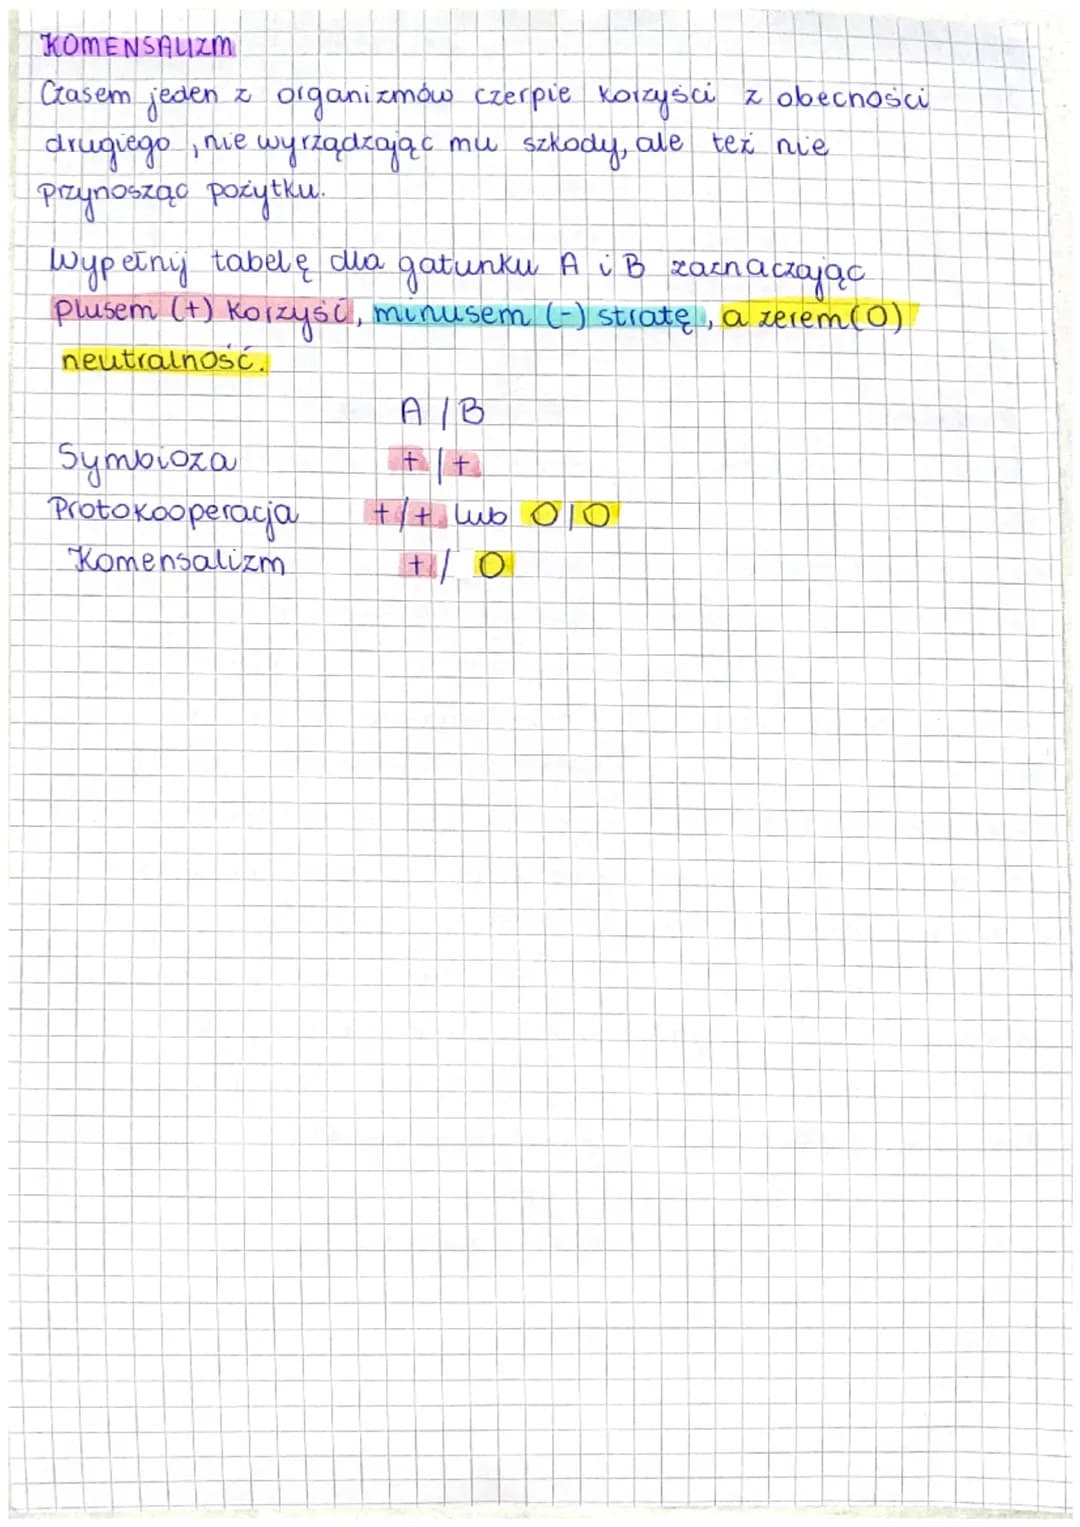 KOMENSALIZM
Czasem jeden z organizmów czerpie korzyści z obecności
drugiego, nie wyrządzając mu szkody, ale też nie
przynosząc pożytku.
Wypełnij tabelę dla gatunku A i B zaznaczając
plusem (+) korzyść, minusem (-) stratę, a zerem (0)
neutralność.
A / B
Symbioza + / +
Protokooperacja +/+ lub 0/0
Komensalizm +/ 0